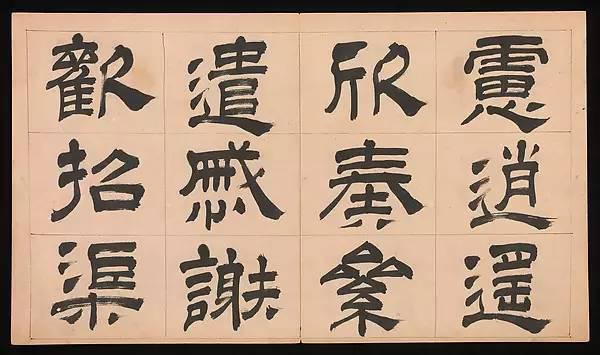 慮逍遙
欣奏絫
遣慼謝
歡招渠